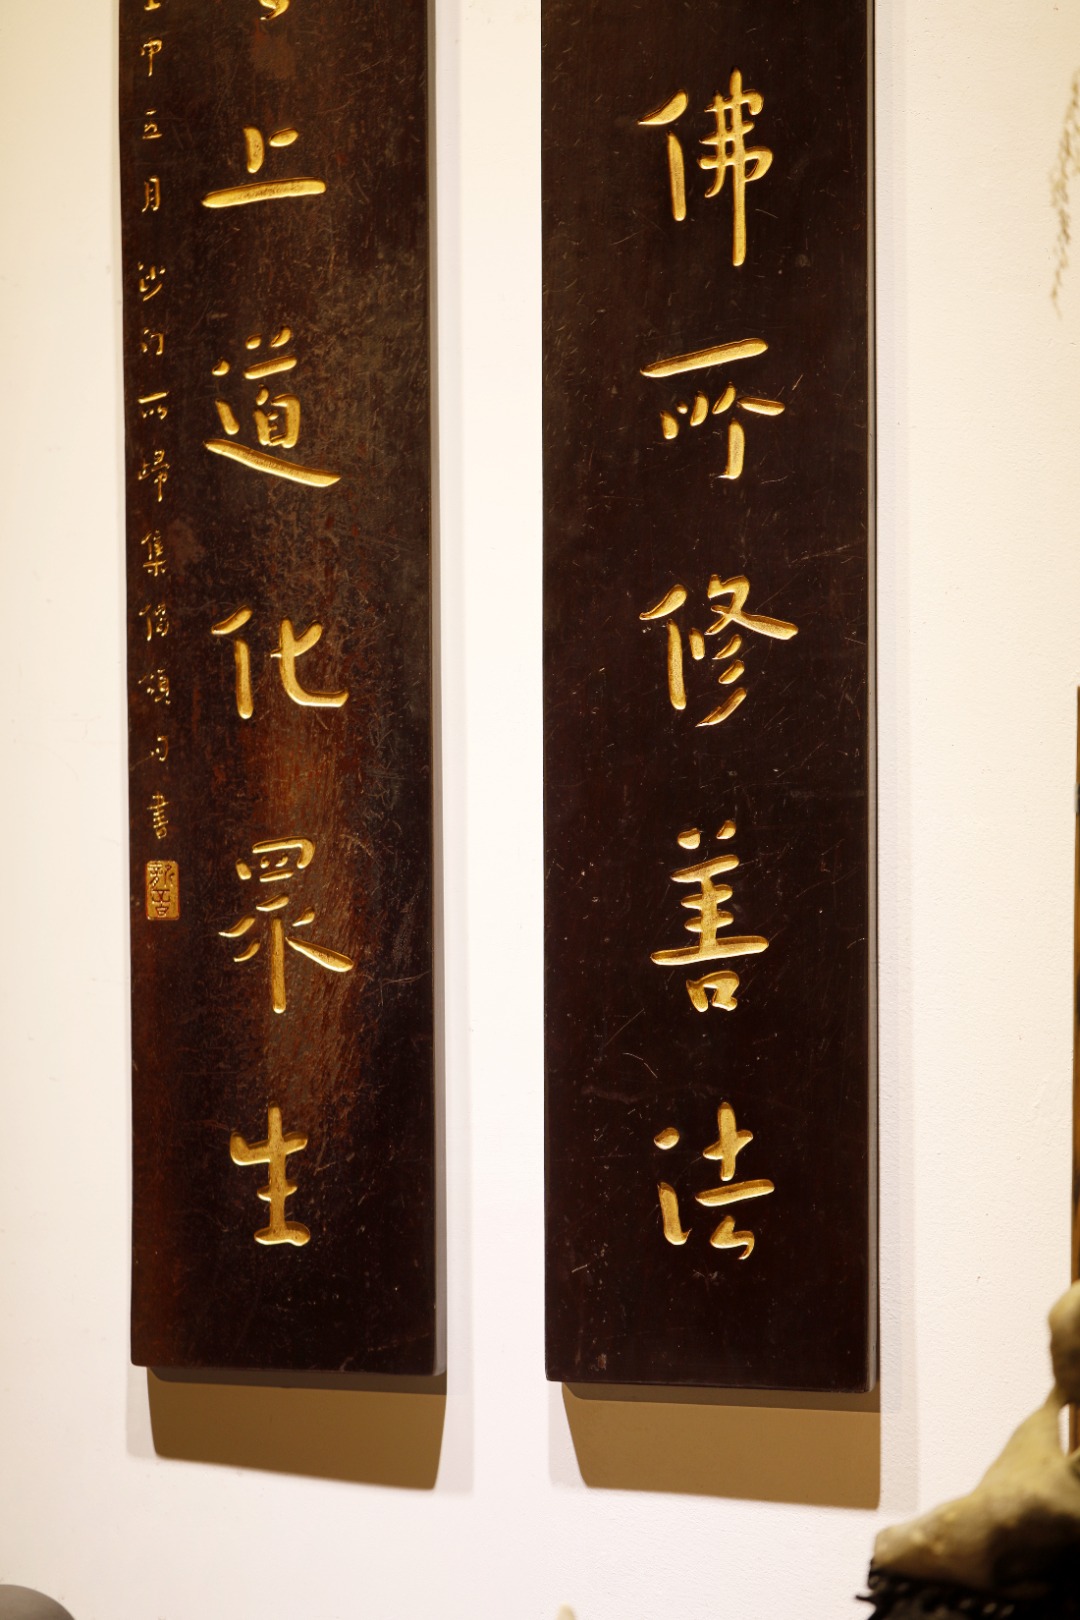 佛所修善法
上道化眾生
甲五月沙門一音集偈頌句書